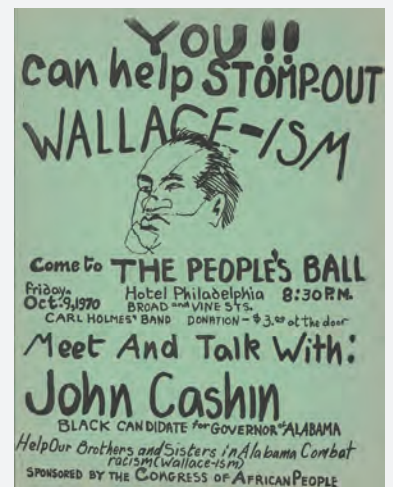 YOU!!
can help STOMP-OUT
WALLACE-ISM
Come to THE PEOPLE'S BALL
Friday. Hotel Philadelphia 8:30 P.M.
Oct. 9, 1970 BROAD and VINE STS.
CARL HOLMES' BAND DONATION - $3.00 at the door
Meet And Talk With:
John Cashin
BLACK CANDIDATE for GOVERNOR of ALABAMA
Help Our Brothers and Sisters in Alabama Combat
racism (Wallace-ism)
SPONSORED BY THE CONGRESS OF AFRICAN PEOPLE